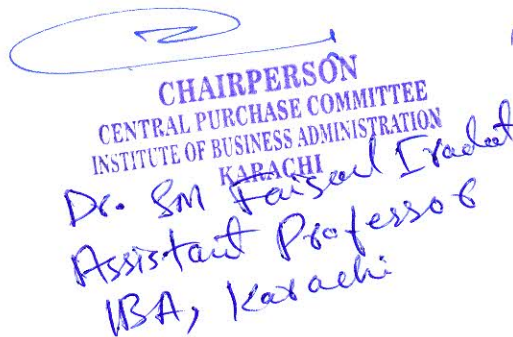 CHAIRPERSON
CENTRAL PURCHASE COMMITTEE
INSTITUTE OF BUSINESS ADMINISTRATION
KARACHI
Dr. SM Faisal Iradat
Assistant Professor
IBA, Karachi